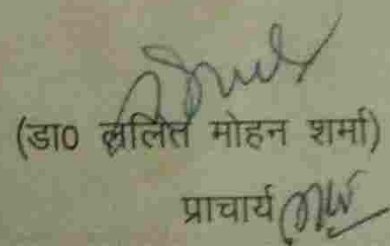 (डा० ललित मोहन शर्मा)
प्राचार्य